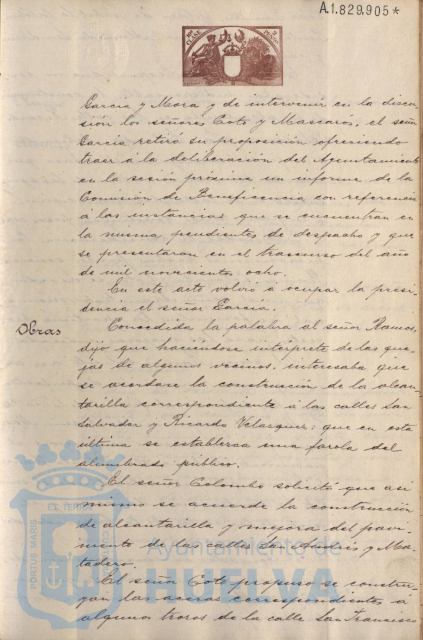 A.1.829.905*
García y Mora y de intervenir en la discu-
sión los señores Coto y Mascarós, el señor
García retiró su proposición ofreciendo
traer á la deliberación del Ayuntamiento
en la sesión próxima un informe de la
Comisión de Beneficencia con referencia
á las instancias que se encuentran en
la misma pendientes de despacho y que
se presentaron en el trascurso del año
de mil novecientos ocho.
En este acto volvió á ocupar la presi-
dencia el señor García.
Obras
Concedida la palabra al señor Ramos,
dijo que haciéndose intérprete de las que-
jas de algunos vecinos, interesaba que
se acordare la construcción de la alcan-
tarilla correspondiente á las calles San
Salvador y Ricardo Velazquez; que en esta
última se establezca una farola del
alumbrado público.
El señor Colombo solicitó que asi
mismo se acuerde la construcción
de alcantarilla y mejora del pavi-
mento de las calles San y Ma-
tadero.
El señor Coto propuso se constru-
yan las aceras correspondientes á
algunos trozos de la calle San Francisco
PORTUS MARIS
Ayuntamiento de
HUELVA